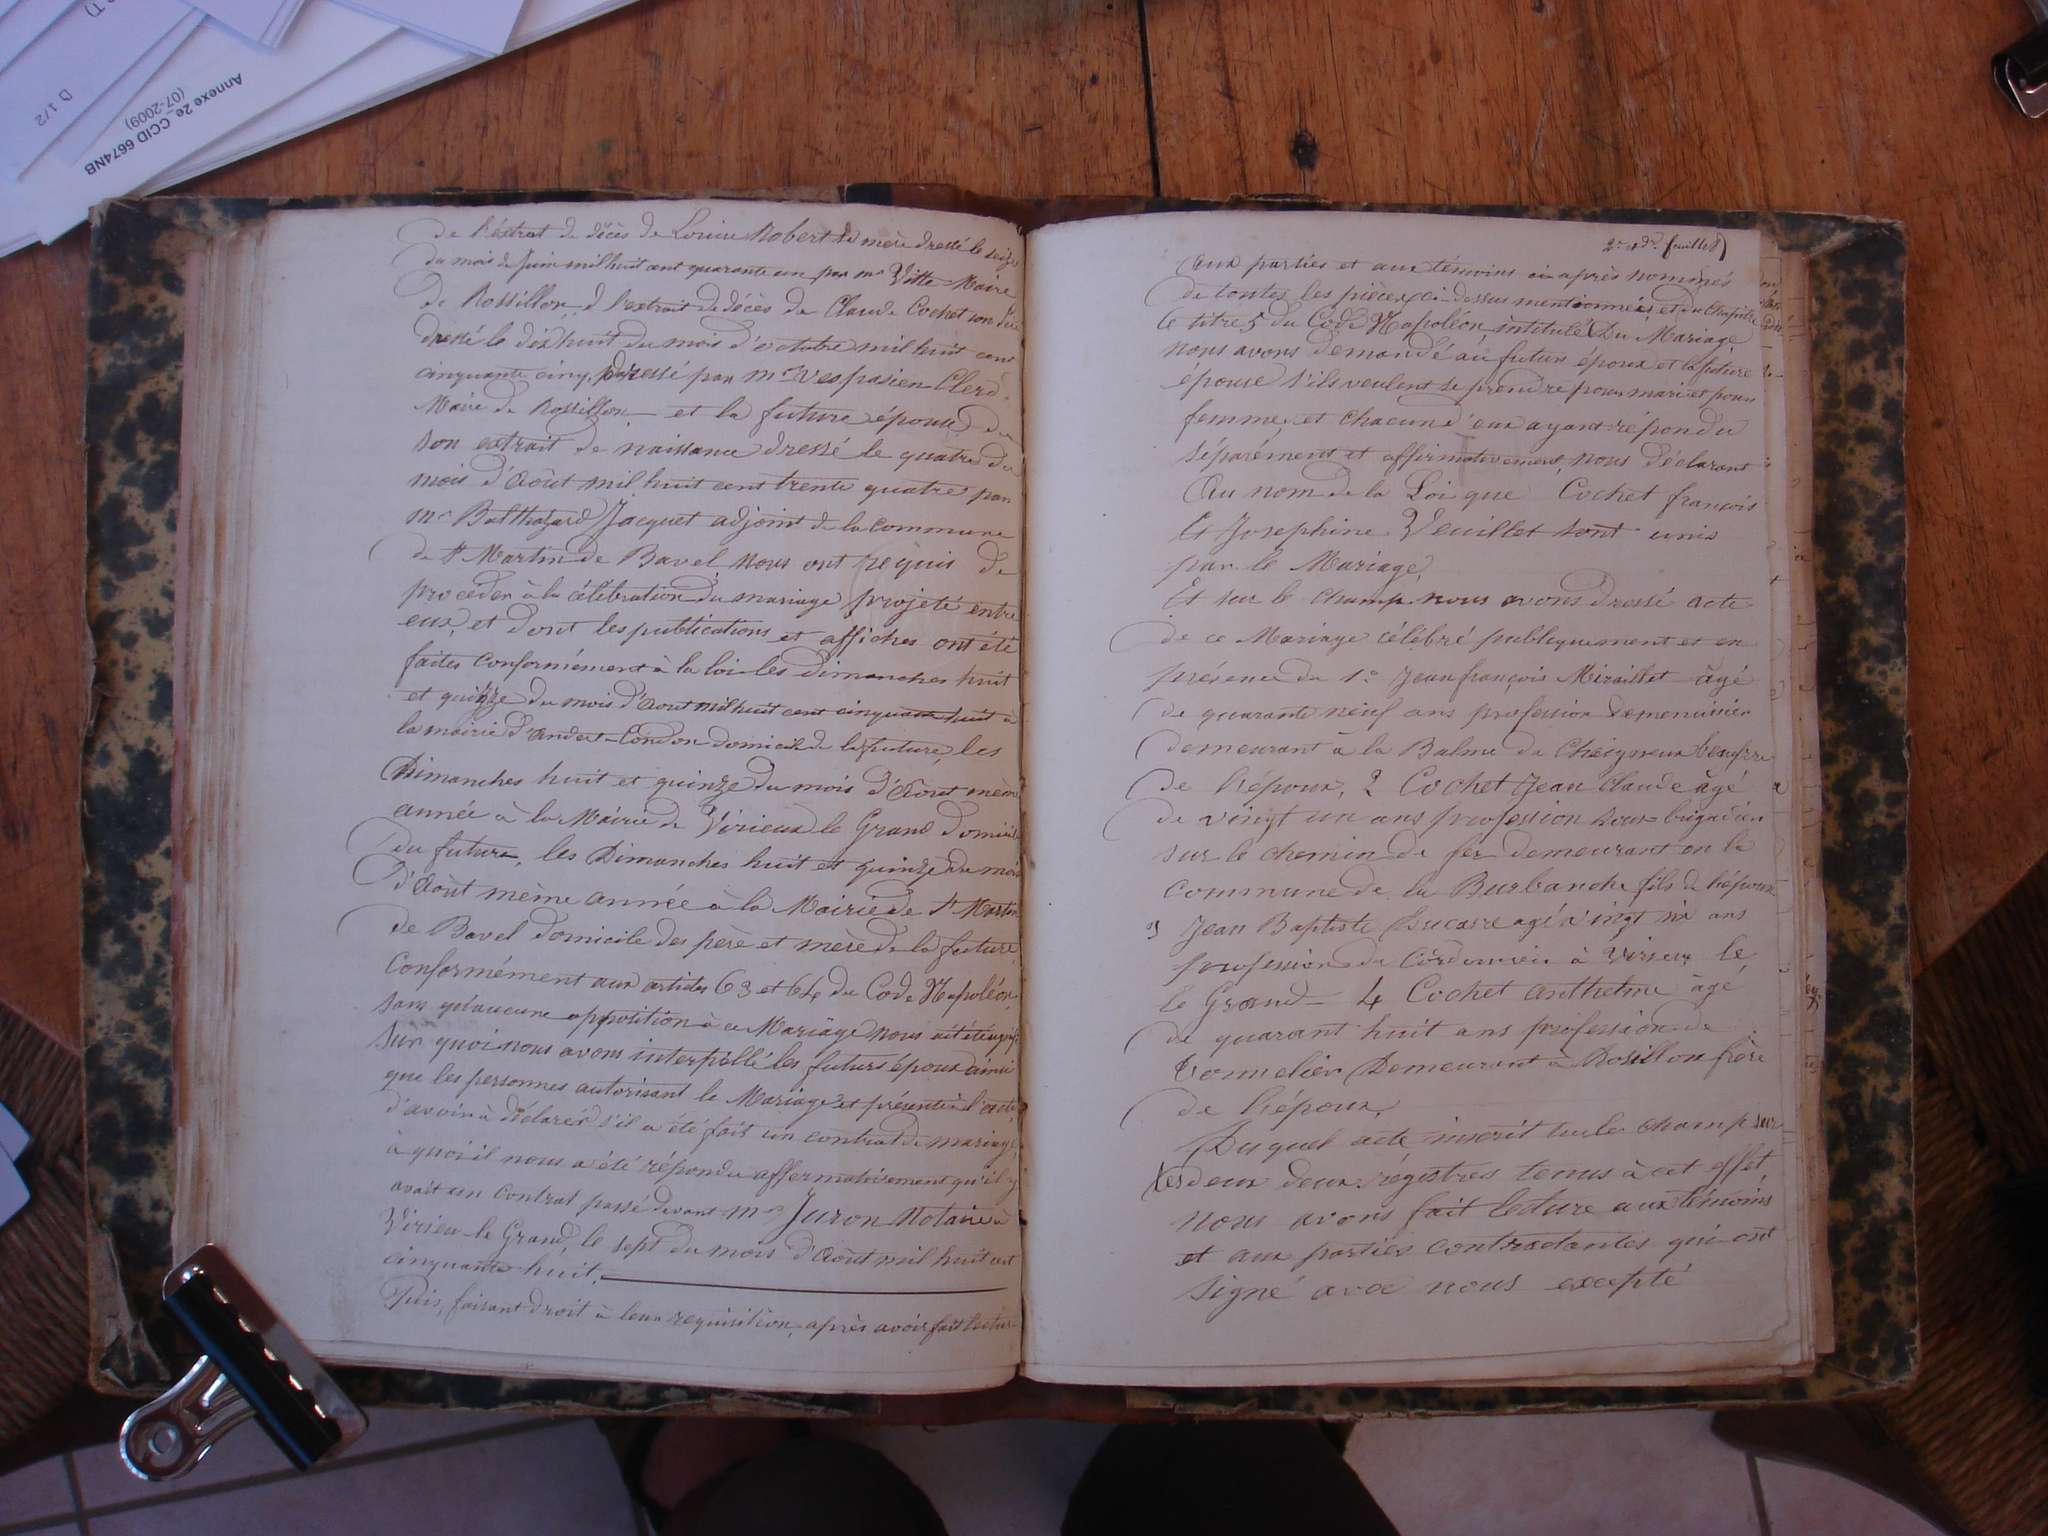 D 1/2
Annexe 2e_CCID 6674NB
(07-2009)
de l'extrait de décès de Louise Robert sa mère dressé le seize
du mois de Juin mil huit cent quarante un par mr Vitte Maire
de Rossillon, d l'extrait de décès de Claude Cochet son père
dressé le dix huit du mois d'octobre mil huit cent
cinquante cinq, dressé par mr Vespasien Clerc
Maire de Rossillon et la future épouse de
son extrait de naissance dressé le quatre du
mois d'Août mil huit cent trente quatre par
mr Balthazard Jacquet adjoint de la commune
de St Martin de Bavel nous ont requis de
procéder à la célébration du mariage projeté entre
eux, et dont les publications et affiches ont été
faites conformément à la loi les dimanches huit
et quinze du mois d'aout mil huit cent cinquante huit à
la mairie d'Andert-Condon domicile de la future, les
Dimanches huit et quinze du mois d'Août même
année à la Mairie de Virieux le Grand domicile
du future, les Dimanches huit et quinze du mois
d'Août même année à la Mairie de St Martin
de Bavel domicile des père et mère de la future
Conformément aux articles 63 et 64 du Code Napoléon,
sans qu'aucune opposition à ce Mariage nous ait été
sur quoi nous avons interpellé les futurs époux ainsi
que les personnes autorisant le Mariage et présente à l'acte,
d'avoir à déclarer s'il a été fait un contrat de mariage,
à quoi il nous a été répondu affermativement qu'il y
avait un contrat passé devant me Juron Notaire à
Virieu le Grand, le sept du mois d'Août mil huit cent
cinquante huit.
Puis, faisant droit à leur requisition, après avoir fait lectur
2me et dr feuille 8
Aux parties et aux témoins ci-après nommés
de toutes les pièces ci-dessus mentionnées, et du chapitre
le titre 5 du Code Napoléon intitulé Du Mariage
nous avons demandé au futur époux et la future
épouse s'ils veulent se prendre pour mari et pour
femme, et chacun d'eux ayant répondu
séparément et affirmativement, nous déclarons
Au nom de la Loi que Cochet françois
Et Josephine Veuillet sont unis
par le Mariage,
Et sur le champ nous avons dressé acte
de ce Mariage célébré publiquement et en
présence de 1o Jean françois Miraillet âgé
de quarante neuf ans profession de menuisier
demeurant à la Balme de Cheigneux beaufrere
de l'époux, 2 Cochet Jean Claude âgé
de vingt un ans profession sous-brigadier
sur le chemin de fer demeurant en la
commune de la Burbanche fils de l'époux
3 Jean Baptiste Ducarre agé vingt six ans
profession de Cordonnier à Virieux le
le Grand 4 Cochet anthelme âgé
de quarant huit ans profession de
tonnelier Demeurant à Rosillon frère
de l'époux,
Du quel acte inscrit sur le champ sur
les deux deux registres tenus à cet effet,
nous avons fait lecture aux témoins
et aux parties contractantes qui ont
signé avec nous excepté